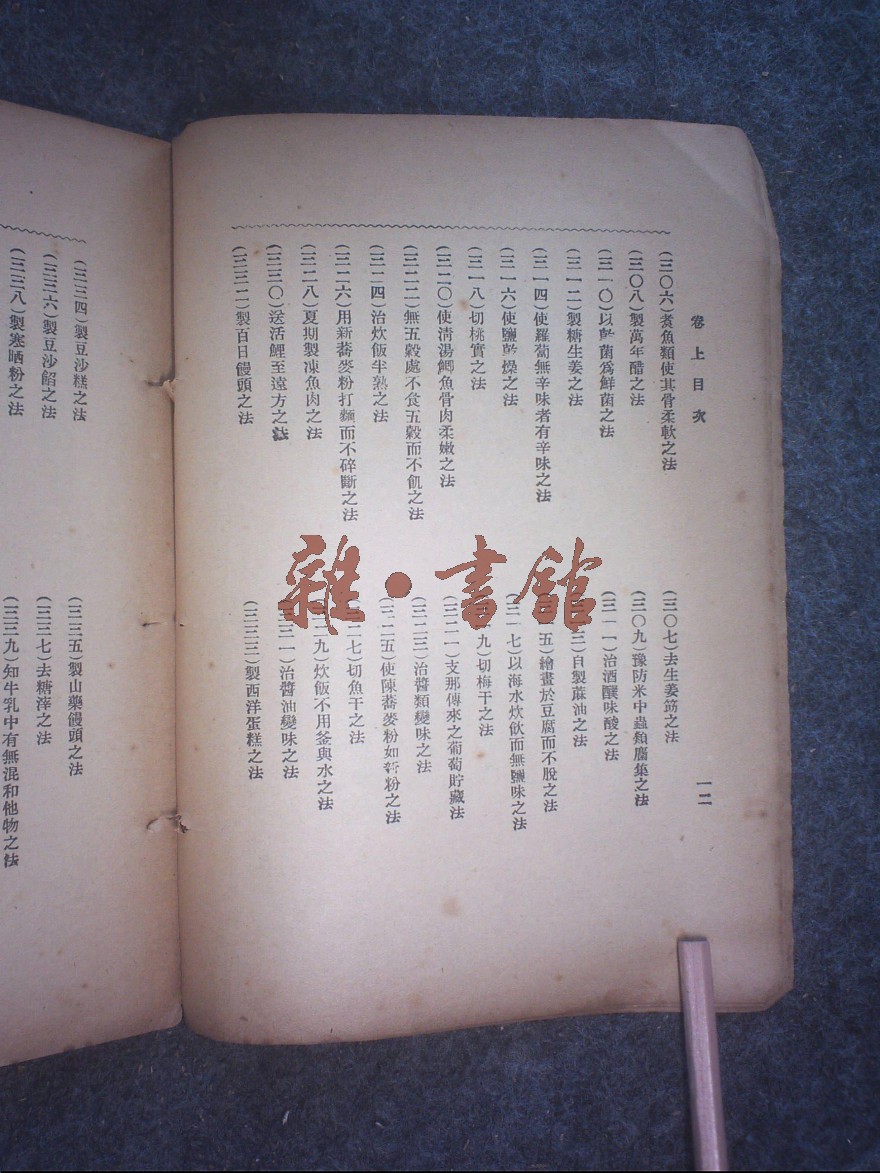 卷上目次
一二
(三〇六)煮魚類使其骨柔軟之法
(三〇七)去生姜筋之法
(三〇八)製萬年醋之法
(三〇九)豫防米中蟲類屬集之法
(三一〇)以乾菌爲鮮菌之法
(三一一)治酒醸味酸之法
(三一二)製糖生姜之法
三)自製蔴油之法
(三一四)使羅蔔無辛味者有辛味之法
五)繪畫於豆腐而不脫之法
(三一六)使鹽乾燥之法
(三一七)以海水炊飲而無鹽味之法
(三一八)切桃實之法
九)切梅干之法
(三二〇)使淸湯鯽魚骨肉柔嫩之法
(三二一)支那傳來之葡萄貯藏法
(三二二)無五穀處不食五穀而不飢之法
(三二三)治醬類變味之法
(三二四)治炊飯半熟之法
(三二五)使陳蕎麥粉如新粉之法
(三二六)用新蕎麥粉打麵而不碎斷之法
二七)切魚干之法
(三二八)夏期製凍魚肉之法
二九)炊飯不用釜與水之法
(三三〇)送活鯉至遠方之法
三一)治醬油變味之法
(三三二)製百日饅頭之法
(三三三)製西洋蛋糕之法
(三三四)製豆沙糕之法
(三三五)製山藥饅頭之法
(三三六)製豆沙餡之法
(三三七)去糖滓之法
(三三八)製寒晒粉之法
(三三九)知牛乳中有無混和他物之法
雜·書館